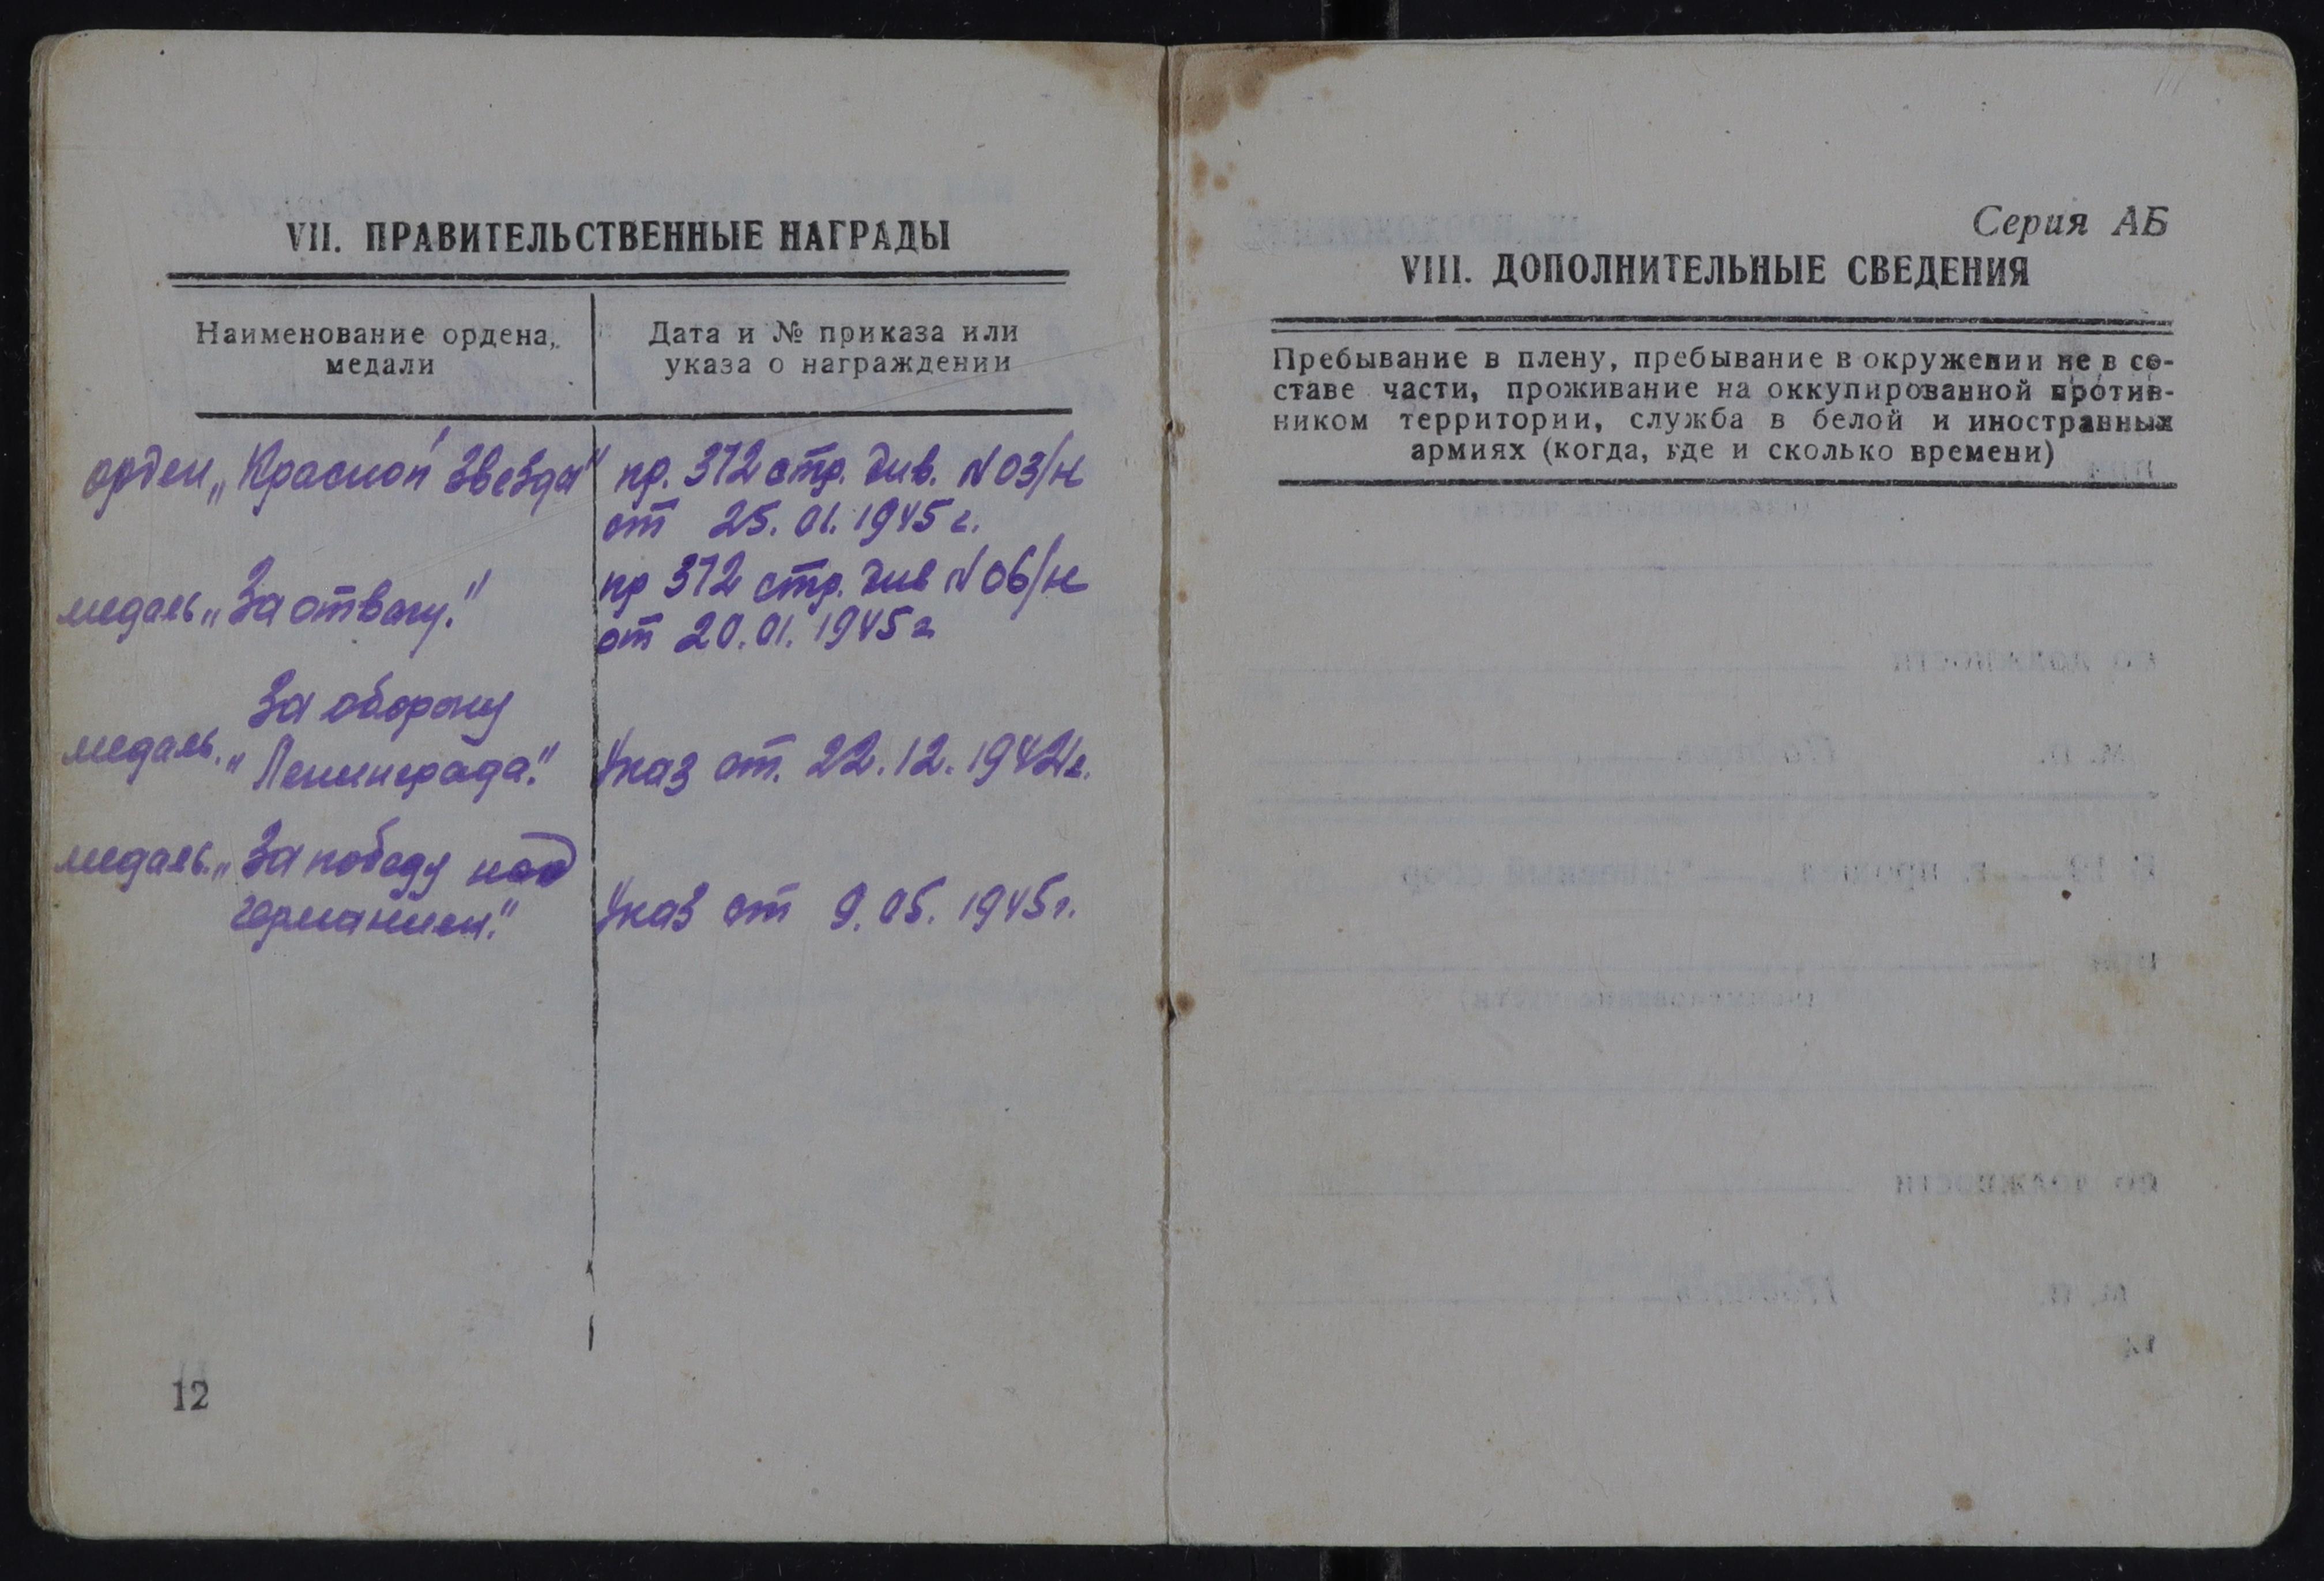 VII. ПРАВИТЕЛЬСТВЕННЫЕ НАГРАДЫ
Наименование ордена,
медали
Дата и № приказа или
указа о награждении
орден „Красной Звезды"
пр. 372 стр. див. N 03/н
от 25.01.1945 г.
медаль „За отвагу."
пр 372 стр. див N 06/н
от 20.01.1945 г
За оборону
медаль „Ленинграда."
Указ от. 22.12.1942 г.
медаль „За победу над
германией."
Указ от 9.05.1945 г.
12
Серия АБ
VIII. ДОПОЛНИТЕЛЬНЫЕ СВЕДЕНИЯ
Пребывание в плену, пребывание в окружении не в со-
ставе части, проживание на оккупированной против-
ником территории, служба в белой и иностранных
армиях (когда, где и сколько времени)